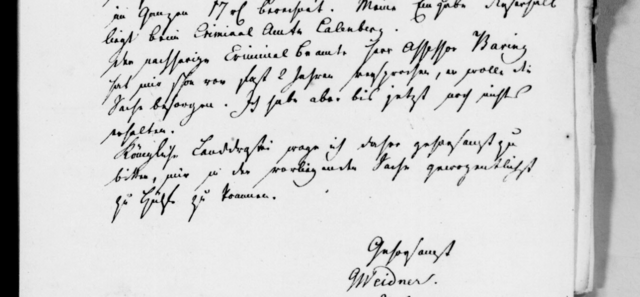 im Ganzen 17 rf berechnet. Meine Eingabe deshalb
liegt beim Criminal Amte Calenberg.
Der nachherige Criminal Beamte Herr Assessor Baring
hat mir schon vor fast 2 Jahren versprochen, er wolle die
Sache besorgen. Ich habe aber bis jetzt noch nichts
erhalten.
Königliche Landdrostei wage ich daher gehorsamst zu
bitten, mir in der vorliegenden Sache gewogentlichst
zu Hülfe zu kommen.
Gehorsamst
GWeidner.